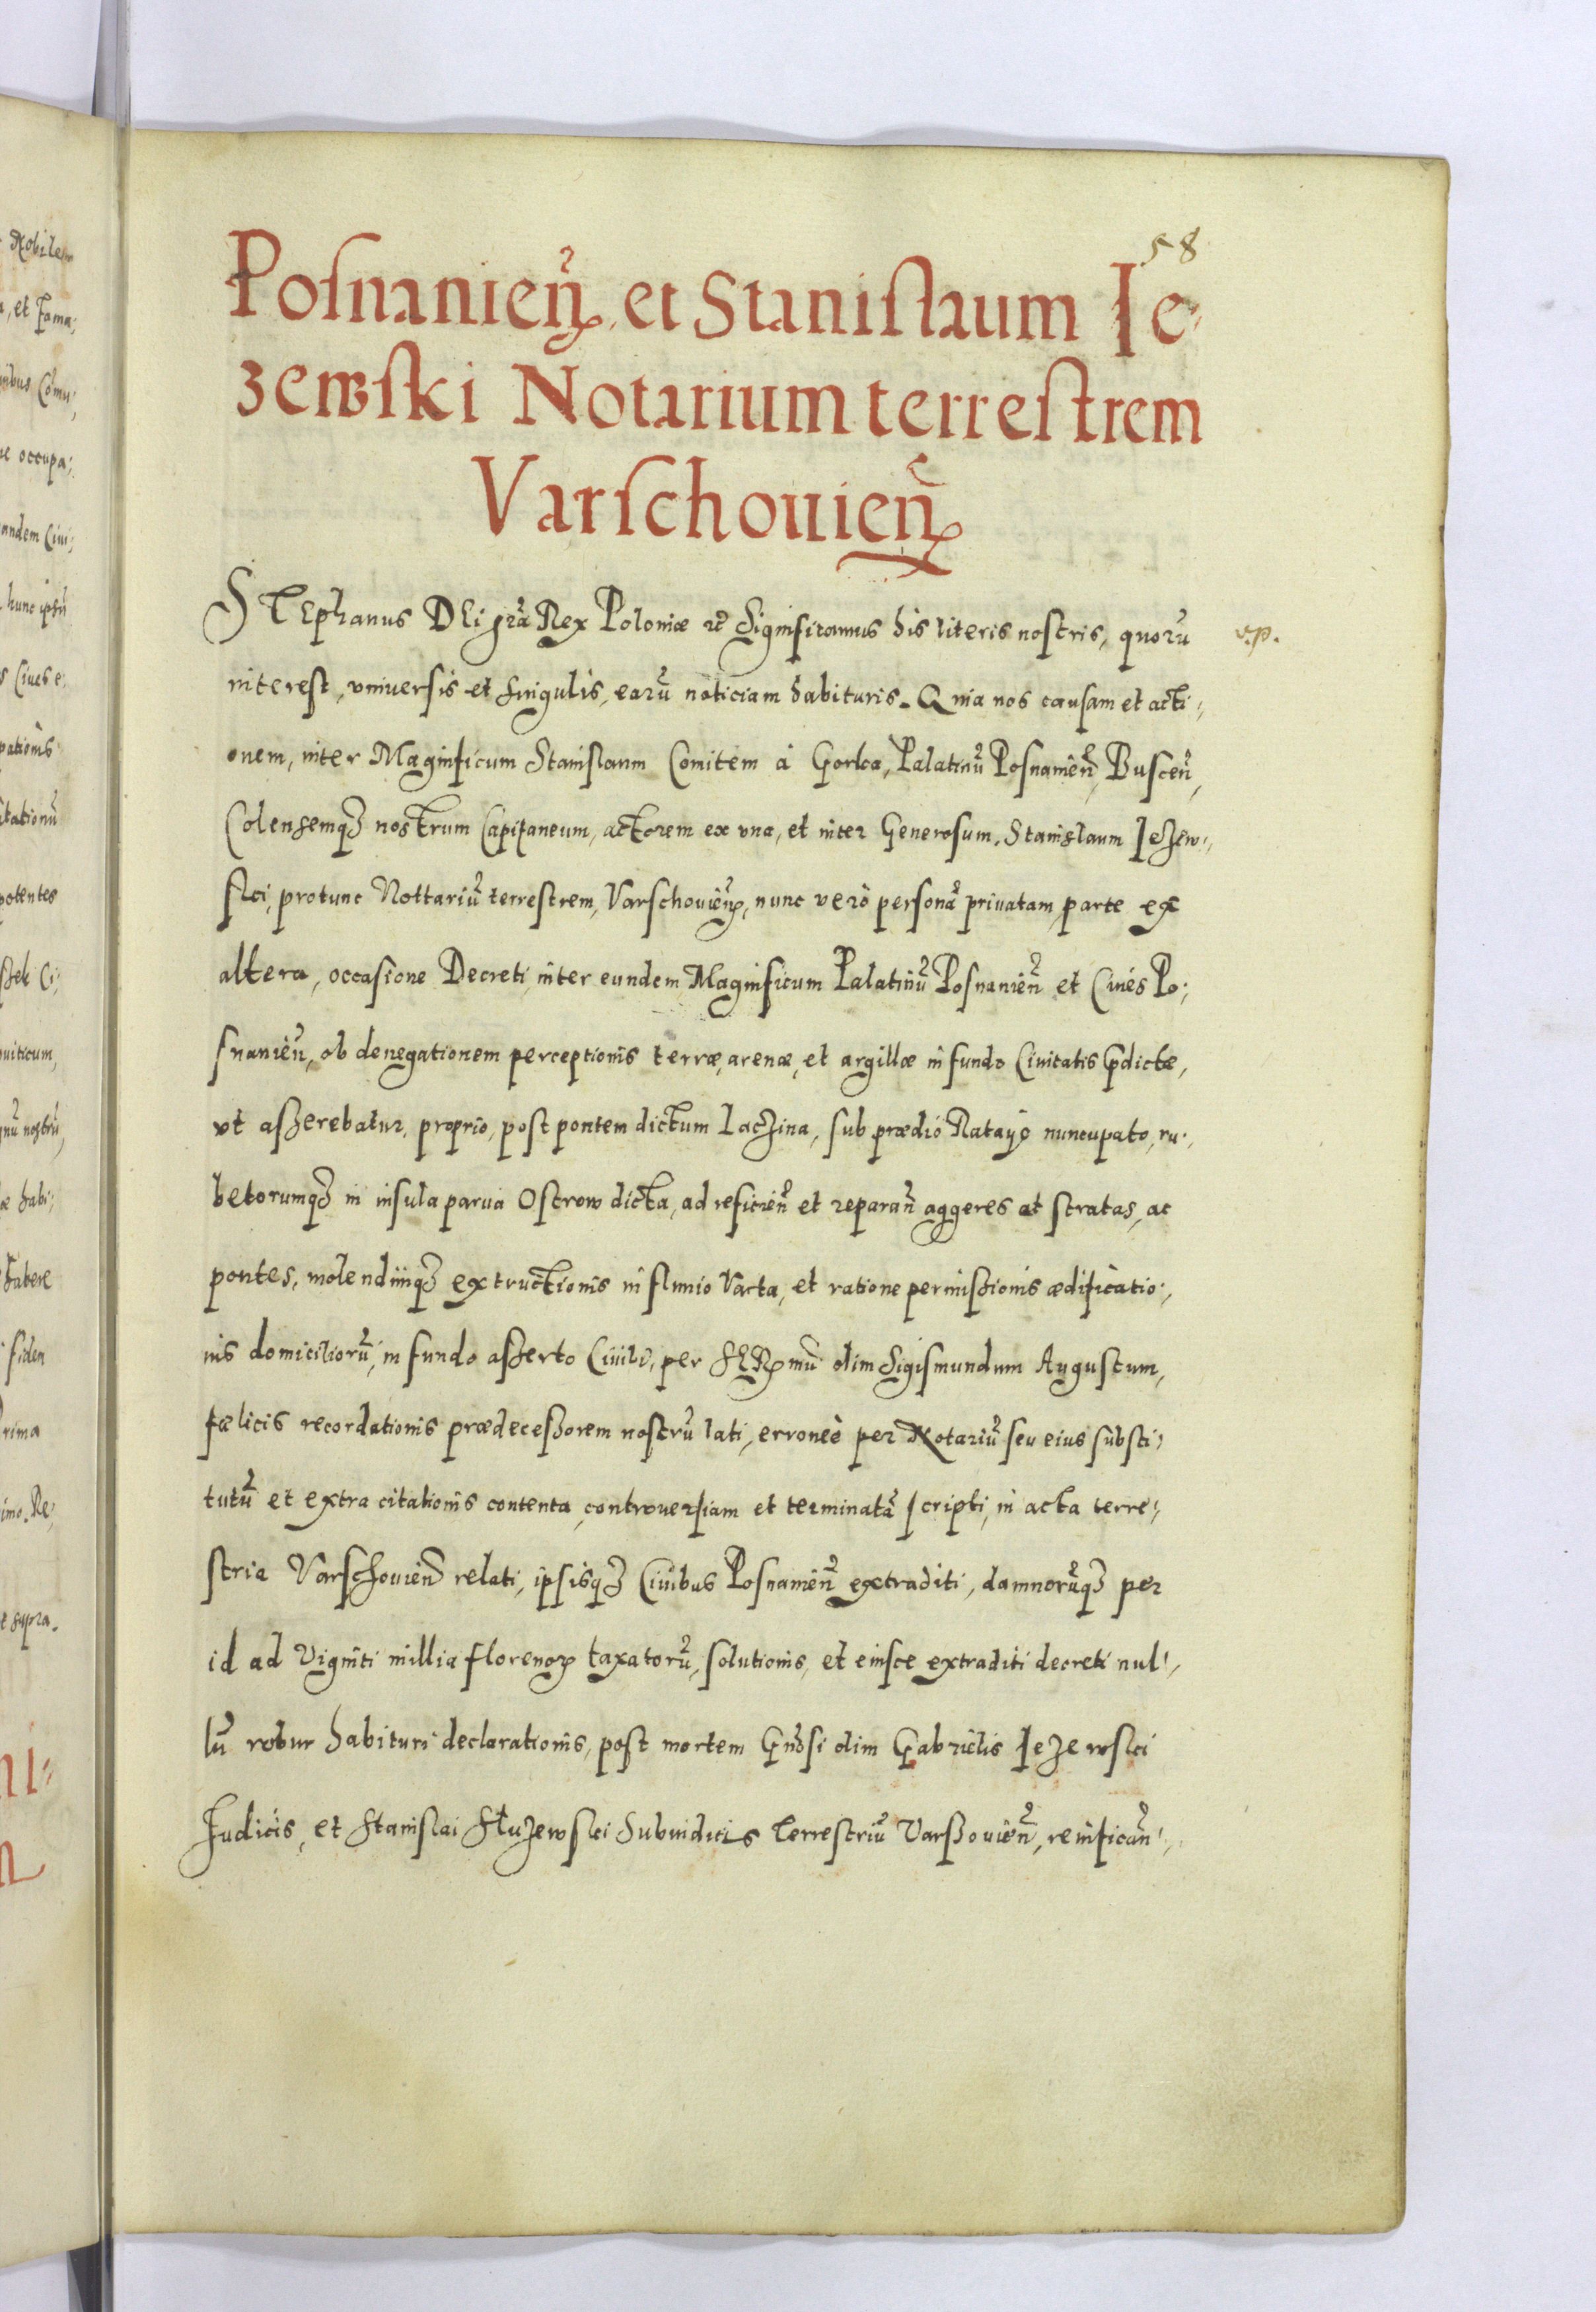 58
Posnanien̄. et Stanislaum Ie-
zewski Notarium terrestrem
Varschouien̄
Stephanus Dei gr̃a Rex Poloniæ ꝛc̃ Significamus his literis nostris, quorũ
v.p.
interest, vniuersis et singulis, earũ noticiam habituris. Quia nos causam et acti-
onem, inter Magnificum Stanislaum Comitem à Gorka, Palatinũ Posnanien̄, Buscen̄,
Colensemqꝫ nostrum Capitaneum, actorem ex vna, et inter Generosum, Stanislaum Iezew-
ski, protunc Nottariũ terrestrem, Varschouien̄, nunc verò personã priuatam parte ex
altera, occasione Decreti inter eundem Magnificum Palatinũ Posnanien̄ et Ciues Po-
snanien̄, ob denegationem perceptionis terræ, arenæ, et argillæ in fundo Ciuitatis p̃dictæ,
vt asserebatur, proprio, post pontem dictum Laczina, sub prædio Rataye nuncupato, ru-
betorumqꝫ in insula parua Ostrow dicta, ad reficien̄ et reparan̄ aggeres at stratas, ac
pontes, molendiniqꝫ extructionis in fluuio Varta, et ratione permissionis ædificatio-
nis domiciliorũ, in fundo asserto Ciuili, per SERmũ olim Sigismundum Augustum,
fœlicis recordationis prædecessorem nostrũ lati, erroneè per Notariũ seu eius substi-
tutũ et extra citationis contenta, controuersiam et terminatã scripti, in acta terre-
stria Varschouien̄ relati, ipsisqꝫ Ciuibus Posnanien̄ extraditi, damnorũqꝫ per
id ad Viginti millia florenoꝝ taxatorũ, solutionis, et eiusce extraditi decreti nul-
lũ robur habituri declarationis, post mortem Gñosi olim Gabrielis Iezewski
Iudicis, et Stanislai Sluzewski Subiudicis Terrestriũ Varssouien̄, reinfican̄-